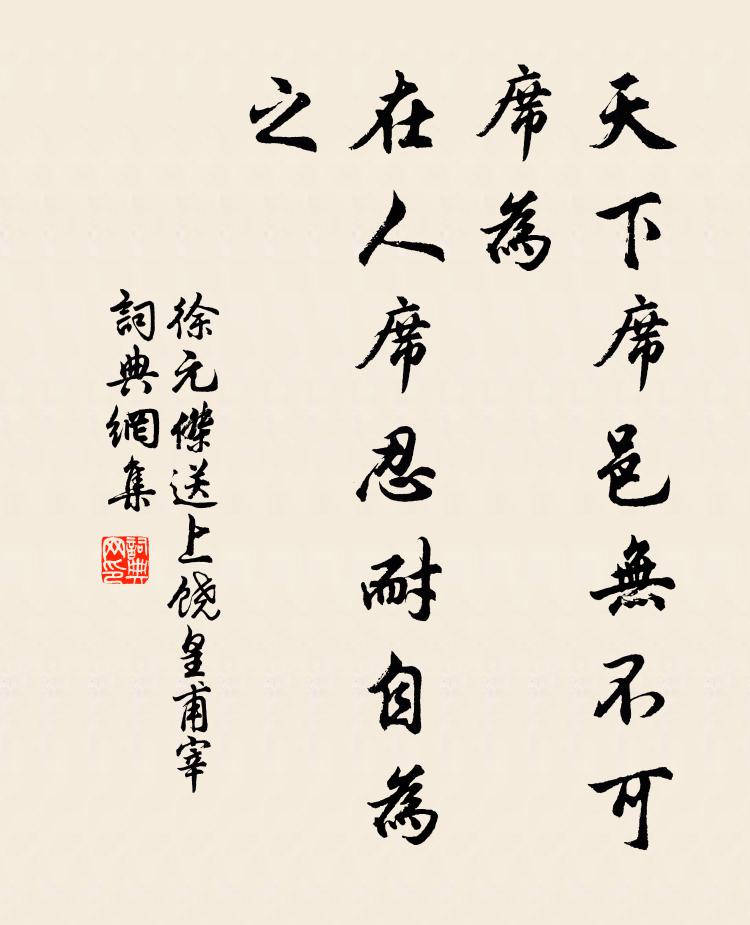 天下席邑無不可
席為
在人席忍耐自為
之
徐元傑送上饶皇甫宰
詞典網集
詞典网印